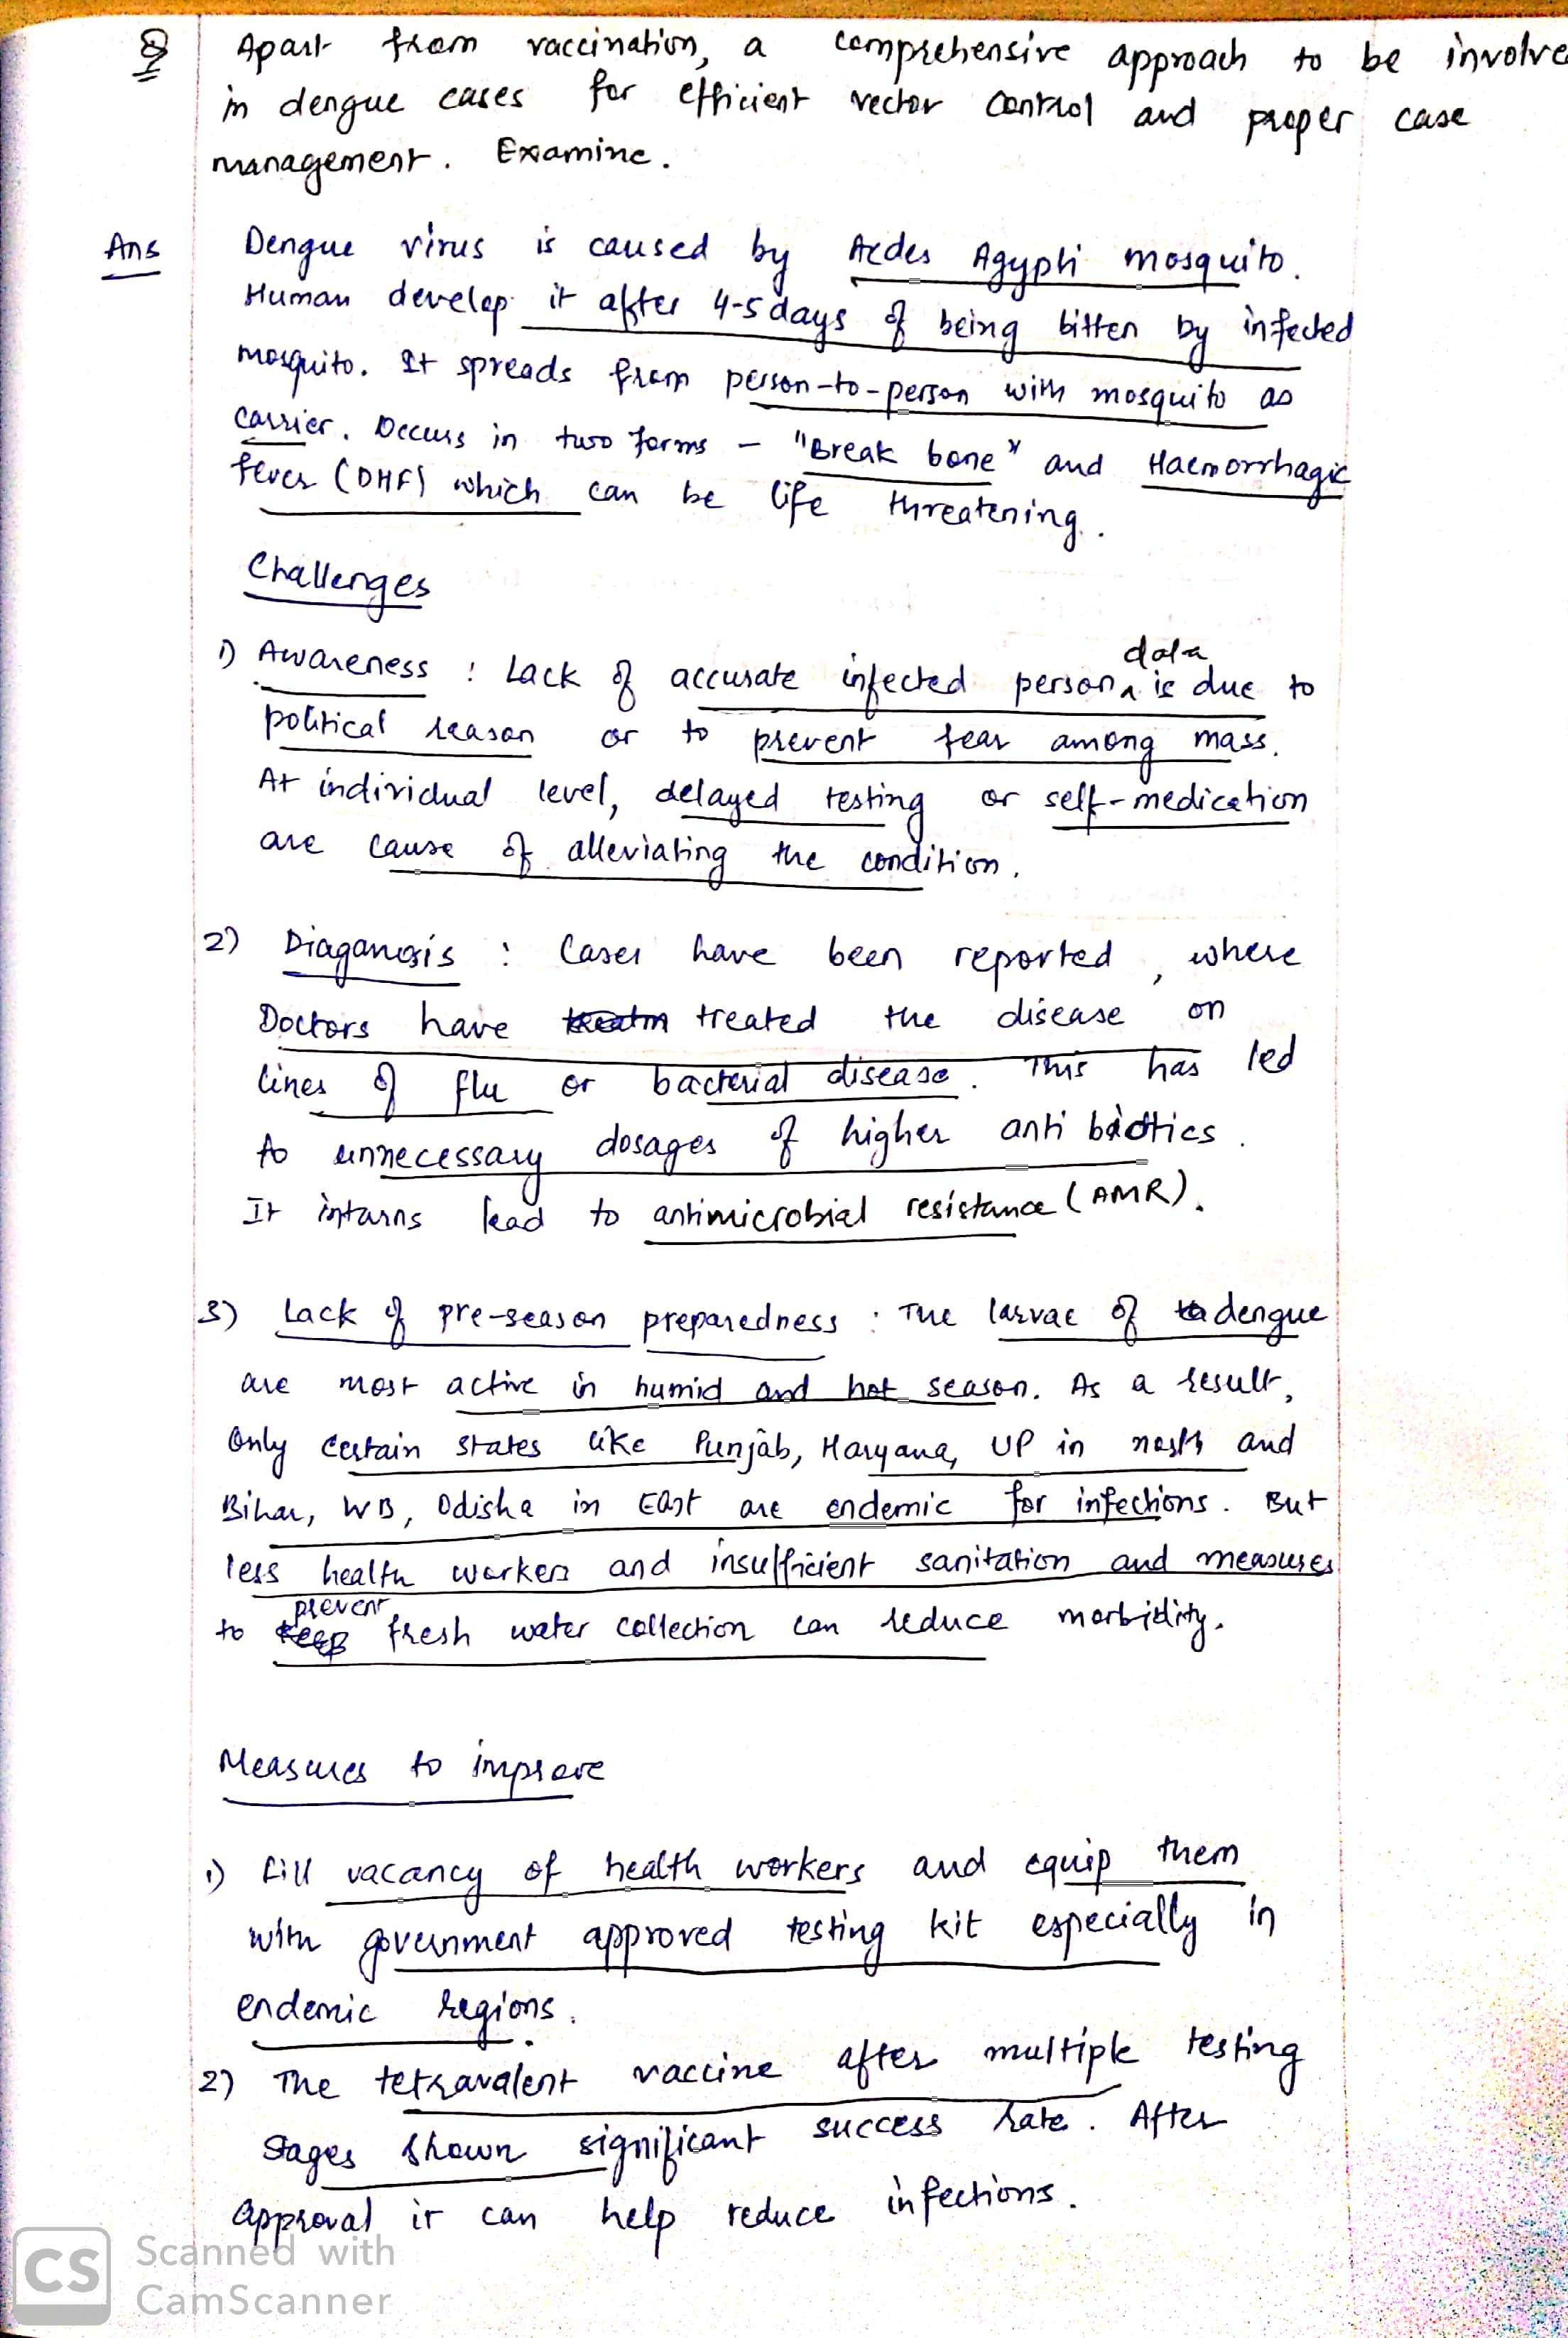 Q Apart from vaccination, a comprehensive approach to be involve
in dengue cases for efficient vector control and proper case
management. Examine.
Ans Dengue virus is caused by Aedes Agypti mosquito.
Human develop it after 4-5 days of being bitten by infected
mosquito. It spreads from person-to-person with mosquito as
carrier. Occurs in two forms - "Break bone" and Haemorrhagic
fever (DHF) which can be life threatening.
Challenges
1) Awareness : Lack of accurate infected person data is due to
political reason or to prevent fear among mass.
At individual level, delayed testing or self-medication
are cause of alleviating the condition.
2) Diaganosis : Cases have been reported, where
Doctors have treated the disease on
lines of flu or bacterial disease. This has led
to unnecessary dosages of higher anti biotics.
It inturns lead to antimicrobial resistance (AMR).
3) Lack of pre-season preparedness : The larvae of dengue
are most active in humid and hot season. As a result,
Only certain states like Punjab, Haryana, UP in north and
Bihar, WB, Odisha in East are endemic for infections. But
less health workers and insufficient sanitation and measures
to prevent fresh water collection can reduce morbidity.
Measures to improve
1) Fill vacancy of health workers and equip them
with government approved testing kit especially in
endemic regions.
2) The tetravalent vaccine after multiple testing
stages shown significant success rate. After
approval it can help reduce infections.
CS Scanned with
CamScanner